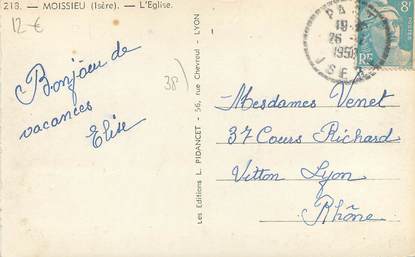 218. — MOISSIEU (Isère). — L'Eglise.
12 €
38)
Bonjour de
vacances
Elise
Les Editions L. PIDANCET - 56, rue Chevreul - LYON
18
26
1950
ISERE
8F
RF
Mesdames Venet
37 Cours Richard
Vitton Lyon
Rhône